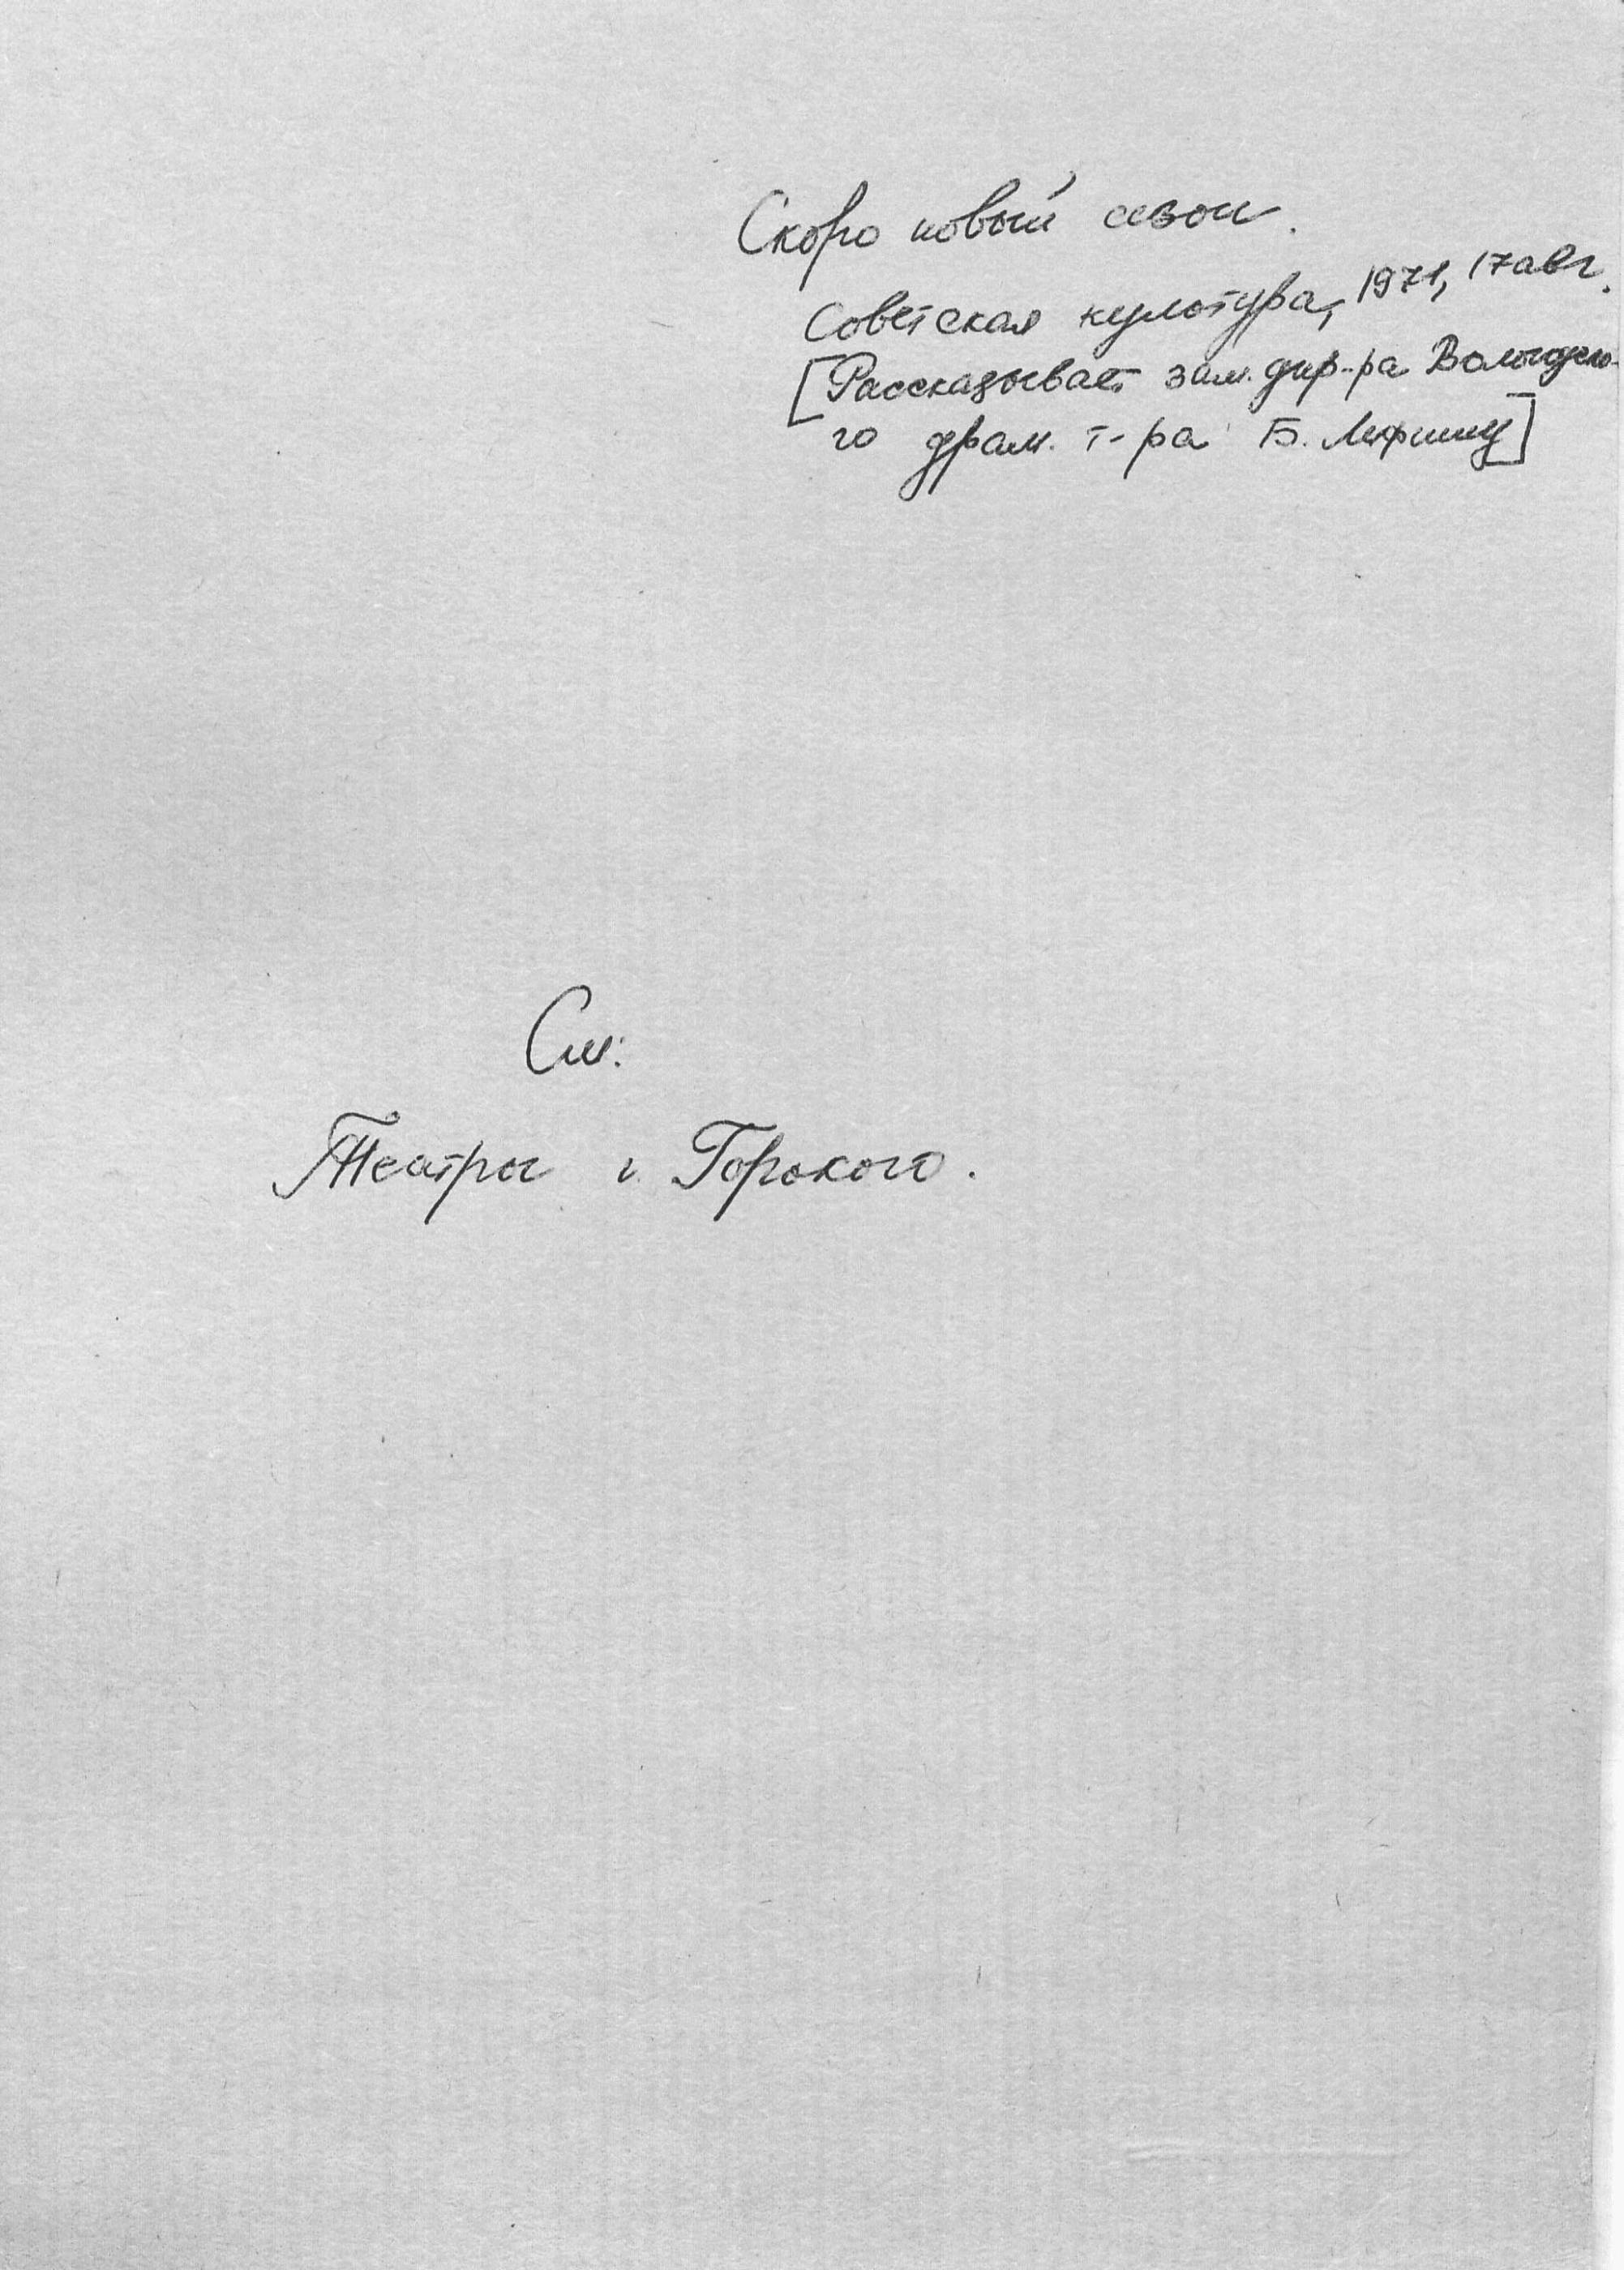 Скоро новый сезон.
Советская культура, 1971, 17 авг.
[Рассказывает зам. дир-ра Вологодско-
го драм. т-ра Б.
См:
Театры г. Горького.